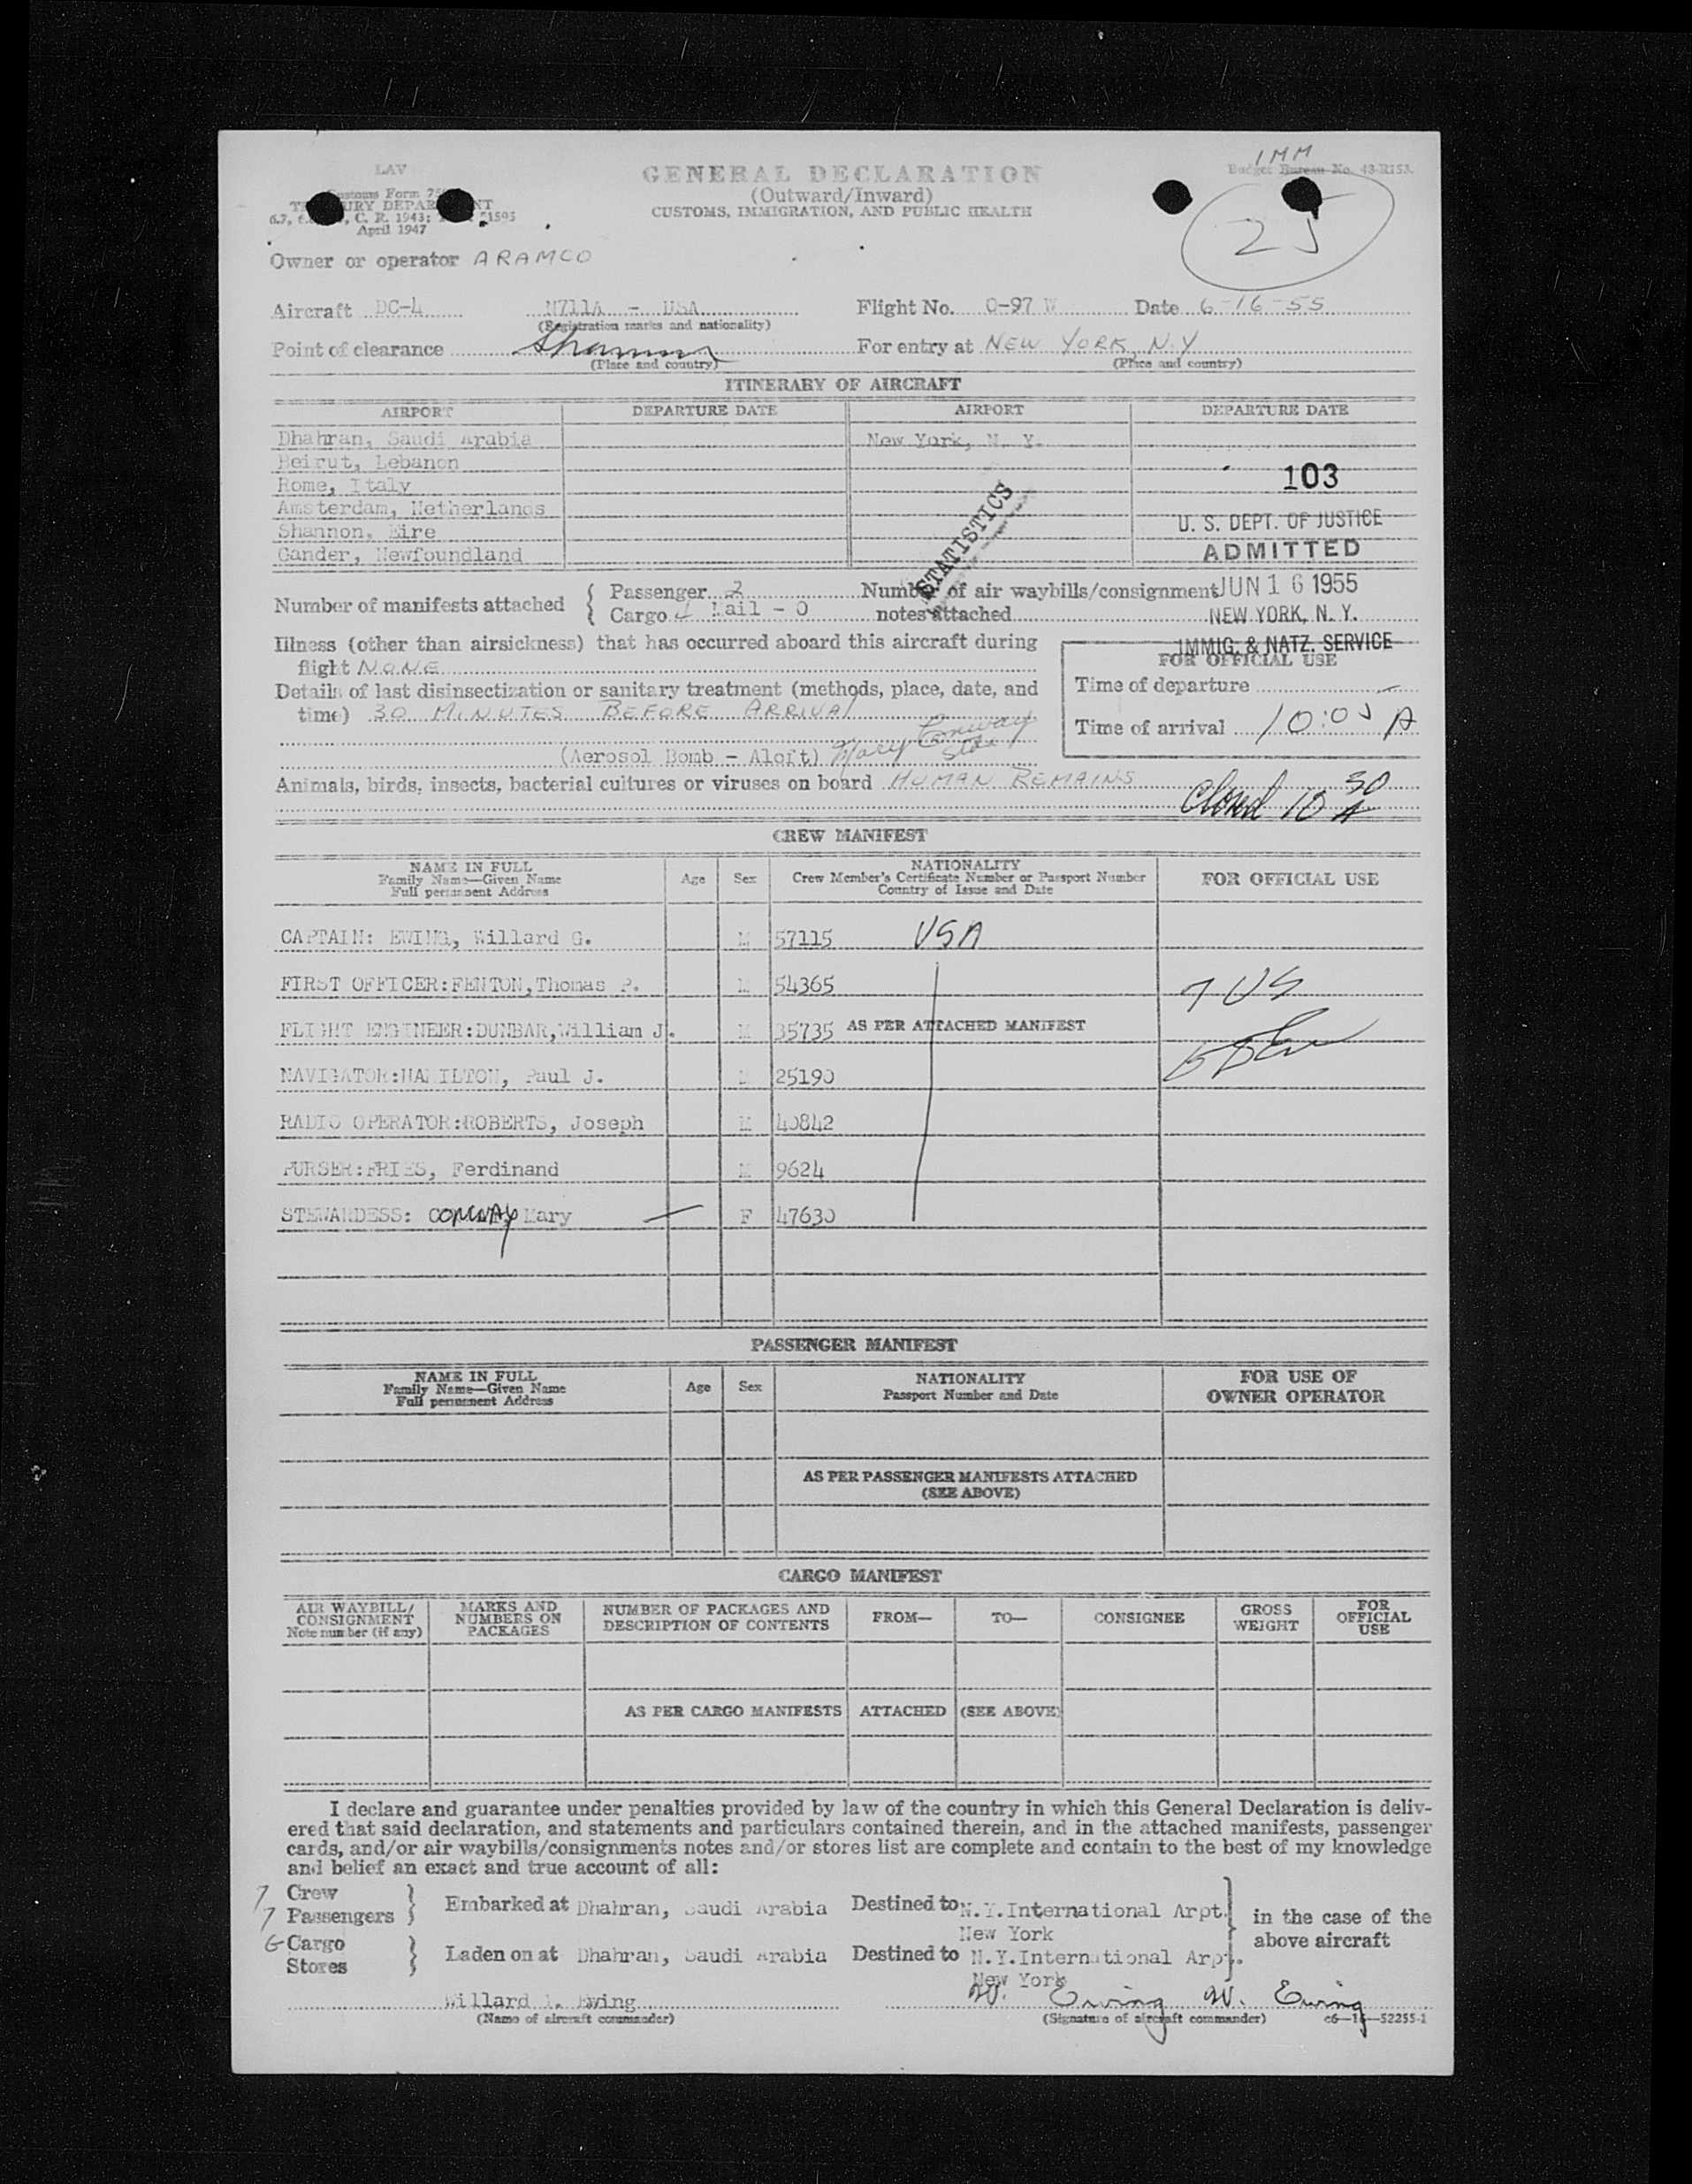 LAV
GENERAL DECLARATION
(Outward/Inward)
CUSTOMS, IMMIGRATION, AND PUBLIC HEALTH
1 MM
Budget Bureau No. 43-R153.
Customs Form
April 1947
25
Owner or operator ARAMCO
Aircraft DC-4 N711A - USA Flight No. O-97 W Date 6-16-55
(Registration marks and nationality)
Point of clearance Shannon For entry at NEW YORK, N.Y
(Place and country) (Place and country)
ITINERARY OF AIRCRAFT
AIRPORT DEPARTURE DATE AIRPORT DEPARTURE DATE
Dhahran, Saudi Arabia New York, N. Y.
Beirut, Lebanon
Rome, Italy 103
Amsterdam, Netherlands
Shannon, Eire U. S. DEPT. OF JUSTICE
Gander, Newfoundland ADMITTED
STATISTICS
JUN 16 1955
NEW YORK, N. Y.
IMMIG. & NATZ. SERVICE
Number of manifests attached { Passenger 2 Number of air waybills/consignment
Cargo 4 Mail - 0 notes attached
Illness (other than airsickness) that has occurred aboard this aircraft during
flight NONE
FOR OFFICIAL USE
Details of last disinsectization or sanitary treatment (methods, place, date, and
time) 30 MINUTES BEFORE ARRIVAL
Time of departure
Time of arrival 10:05 A
(Aerosol Bomb - Aloft) Mary Conway
Animals, birds, insects, bacterial cultures or viruses on board HUMAN REMAINS
Closed 10 30 A
CREW MANIFEST
NAME IN FULL
Family Name—Given Name
Full permanent Address
Age Sex
NATIONALITY
Crew Member's Certificate Number or Passport Number
Country of Issue and Date
FOR OFFICIAL USE
CAPTAIN: EWING, Willard G. M 57115 USA
FIRST OFFICER:FENTON,Thomas P. M 54365 7 US
FLIGHT ENGINEER:DUNBAR,William J. M 35735 AS PER ATTACHED MANIFEST
NAVIGATOR:HAMILTON, Paul J. M 25190
RADIO OPERATOR:ROBERTS, Joseph M 40842
PURSER:FRIES, Ferdinand M 9624
STEWARDESS: CONWAY Mary F 47630
PASSENGER MANIFEST
NAME IN FULL
Family Name—Given Name
Full permanent Address
Age Sex
NATIONALITY
Passport Number and Date
FOR USE OF
OWNER OPERATOR
AS PER PASSENGER MANIFESTS ATTACHED
(SEE ABOVE)
CARGO MANIFEST
AIR WAYBILL/
CONSIGNMENT
Note number (if any)
MARKS AND
NUMBERS ON
PACKAGES
NUMBER OF PACKAGES AND
DESCRIPTION OF CONTENTS
FROM—
TO—
CONSIGNEE
GROSS
WEIGHT
FOR
OFFICIAL
USE
AS PER CARGO MANIFESTS ATTACHED (SEE ABOVE)
I declare and guarantee under penalties provided by law of the country in which this General Declaration is deliv-
ered that said declaration, and statements and particulars contained therein, and in the attached manifests, passenger
cards, and/or air waybills/consignments notes and/or stores list are complete and contain to the best of my knowledge
and belief an exact and true account of all:
7 Crew
7 Passengers } Embarked at Dhahran, Saudi Arabia Destined to N.Y.International Arpt.
New York
6 Cargo
Stores } Laden on at Dhahran, Saudi Arabia Destined to N.Y.International Arpt.
New York
in the case of the
above aircraft
Willard G. Ewing W. Ewing W. Ewing
(Name of aircraft commander) (Signature of aircraft commander) c6—16—52255-1